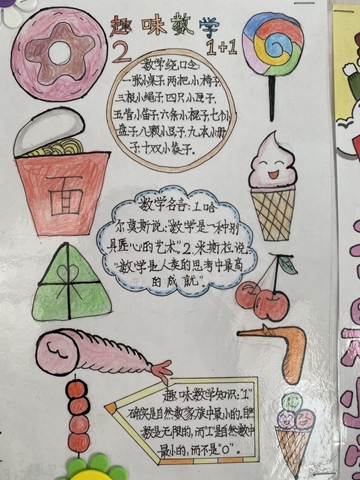 趣味数学
2
1+1
数学绕口令:
一张小桌子,两把小椅子,
三根小绳子,四只小匣子,
五管小笛子,六条小棍子,七个小
盘子,八颗小豆子,九本小册
子,十双小筷子.
面
数学名言:1.哈
尔莫斯说:"数学是一种别
具匠心的艺术"2.米斯拉说,
"数学是人类的思考中最高
的成就".
趣味数学知识:"1"
确实是自然数家族中最小的,自然
数是无限的,而1是自然数中
最小的,而不是"0".